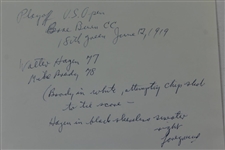 Playoff U.S. Open
Brae Burn CC,
18th green June 12, 1919
Walter Hagen 77
Mike Brady 78
(Brady in white, attempting chip shot
to tie score —
Hagen in black sleeveless sweater
right
foreground